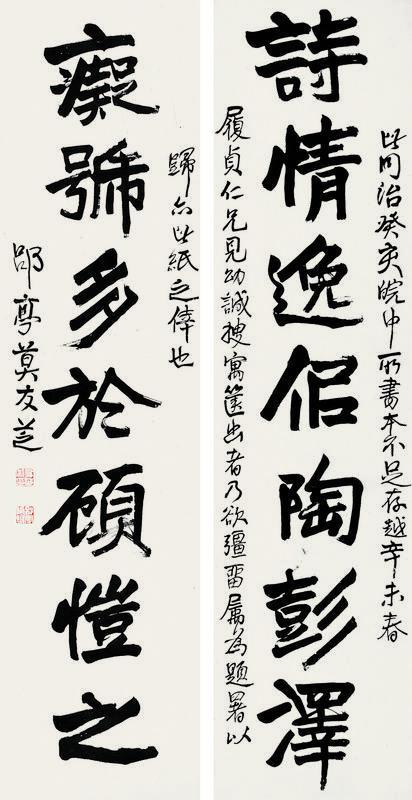 此同治癸亥皖中所書本不足存越辛未春
詩情逸佀陶彭澤
履貞仁兄見幼誠搜寓篋出者乃欲彊留屬為題署以
歸亦此紙之倖也
癡號多於顧愷之
郘亭莫友芝